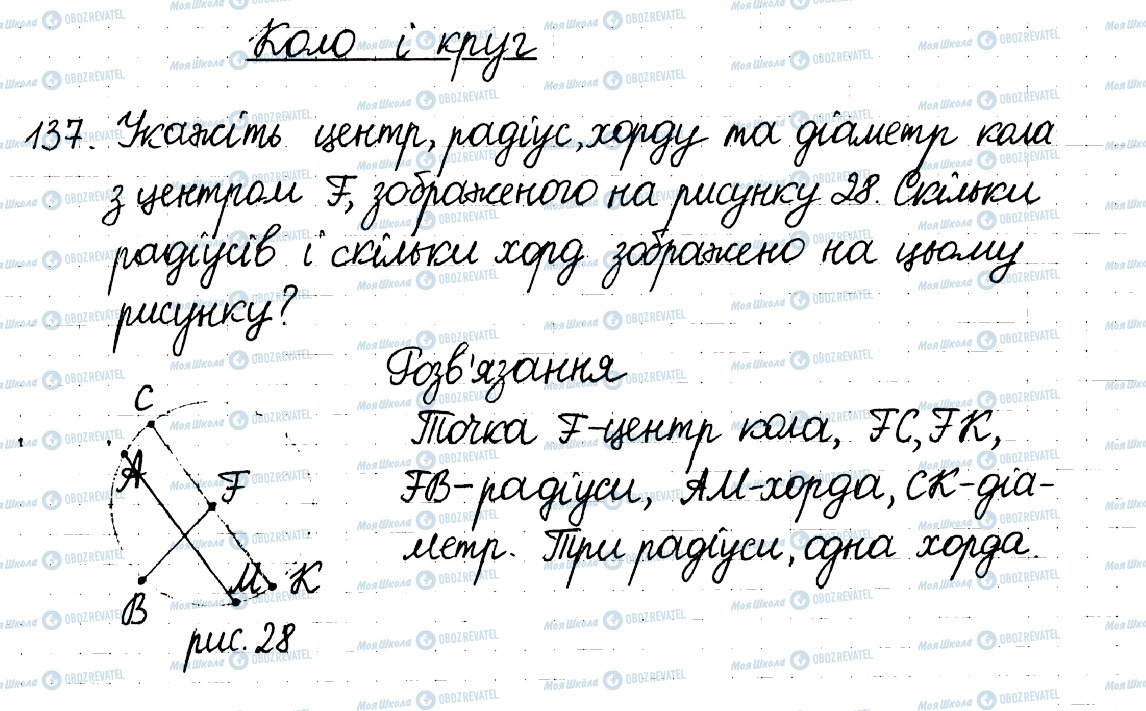 Коло і круг
137. Укажіть центр, радіус, хорду та діаметр кола
з центром F, зображеного на рисунку 28. Скільки
радіусів і скільки хорд зображено на цьому
рисунку?
Розв'язання
Точка F-центр кола, FC, FK,
FB-радіуси, AM-хорда, CK-діа-
метр. Три радіуси, одна хорда.
C
A
F
B
M
K
рис. 28
МояШкола OBOZREVATEL